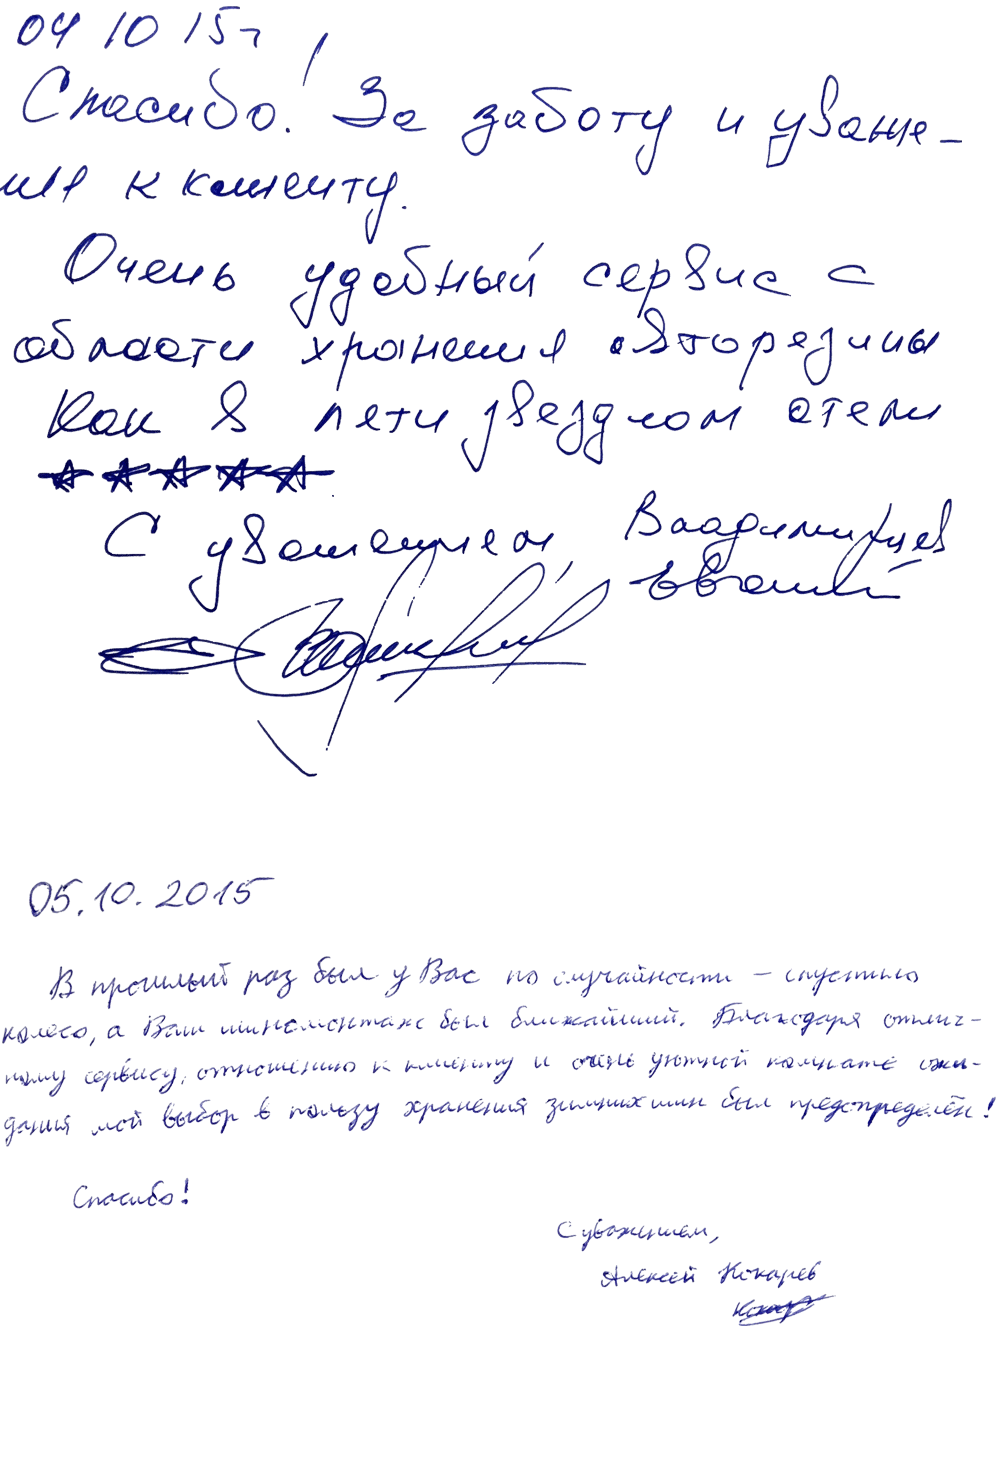 04 10 15г
Спасибо! За заботу и уваже-
ния к клиенту.
Очень удобный сервис с
области хранения авторезины
Как в пяти звездном отели
★★★★★
С уважением Владимирцев
05.10.2015
В прошлый раз был у Вас по случайности – спустило
колесо, а Ваш шиномонтаж был ближайший. Благодаря отлич-
ному сервису, отношению к клиенту и очень уютной комнате ожи-
дания мой выбор в пользу хранения зимних шин был предопределён!
Спасибо!
С уважением,
Алексей Кокарев